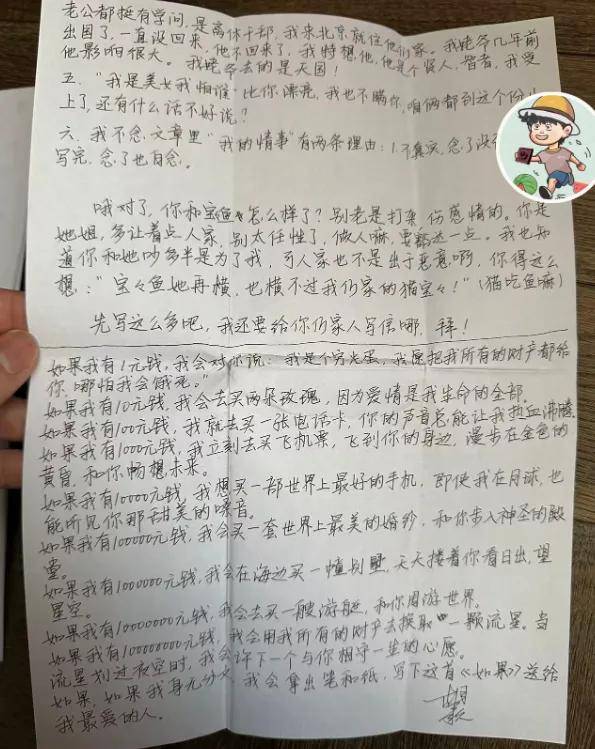 老公都挺有学问，是离休干部，我来北京就住他们家。我姥爷几年前
出国了，一直没回来，他不回来了，我特想他，他是个贤人，智者，我受
他影响很大。我姥爷去的是天国！
五．"我是美女我怕谁"比你漂亮，我也不瞒你，咱俩都到这个份儿
上了，还有什么话不好说？
六．我不念文章里"我的情事"有两条理由：1．不真实，念了没
写完．念了也白念。
哦对了，你和宝鱼怎么样了？别老是打架 伤感情的。你是
她姐，多让着点人家，别太任性了，做人嘛，要豁达一点。我也知
道你和她吵多半是为了我，可人家也不是出于恶意啊，你得这么
想："宝々鱼她再横，也横不过我们家的猫宝々！"（猫吃鱼嘛）
先写这么多吧，我还要给你们家人写信哪，拜！
如果我有1元钱，我会对你说："我是个穷光蛋，我愿把我所有的财产都给
你，哪怕我会饿死。"
如果我有10元钱，我会去买两朵玫瑰，因为爱情是我生命的全部。
如果我有100元钱，我就去买一张电话卡，你的声音总能让我热血沸腾。
如果我有1000元钱，我立刻去买飞机票，飞到你的身边，漫步在金色的
黄昏，和你畅想未来。
如果我有10000元钱，我想买一部世界上最好的手机，即使我在月球，也
能听见你那甜美的嗓音。
如果我有100000元钱，我会买一套世界上最美的婚纱，和你步入神圣的殿
堂。
如果我有1000000元钱，我会在海边买一幢别墅，天天搂着你看日出，望
星空。
如果我有10000000元钱，我会去买一艘游艇，和你周游世界。
如果我有100000000元钱，我会用我所有的财产去换取一颗流星。当
流星划过夜空时，我会许下一个与你相守一生的心愿。
如果，如果我身无分文，我会拿出笔和纸，写下这首《如果》送给
我最爱的人。